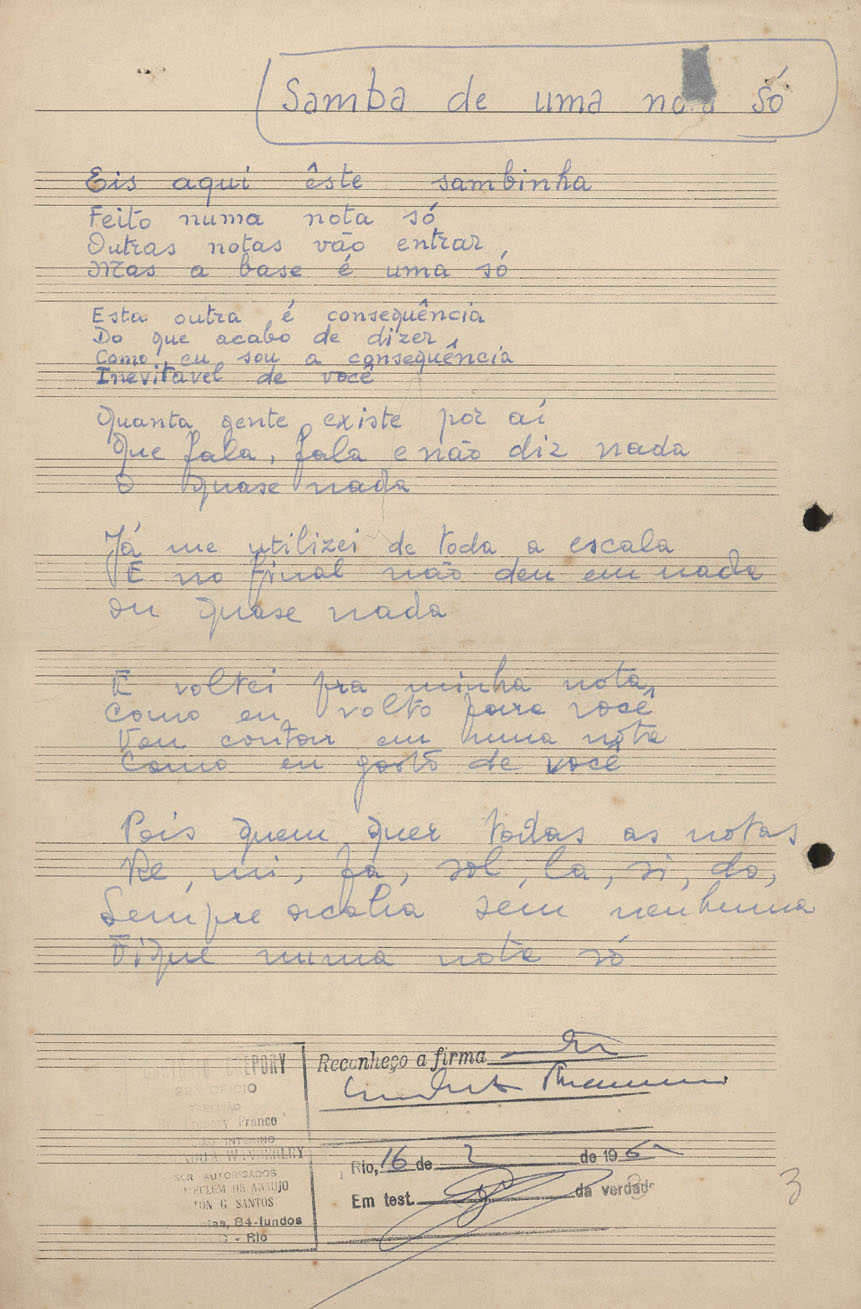 Samba de uma nota só
Eis aqui êste sambinha
Feito numa nota só
Outras notas vão entrar
Mas a base é uma só
Esta outra é consequência
Do que acabo de dizer
Como eu sou a consequência
Inevitavel de você
Quanta gente existe por aí
Que fala, fala e não diz nada
O quase nada
Já me utilizei de toda a escala
E no final não deu em nada
Ou quase nada
E voltei pra minha nota
Como eu volto para você
Vou contar em numa nota
Como eu gosto de você
Pois quem quer todas as notas
Re, mi, fa, sol, la, si, do,
Sempre acaba sem nenhuma
Fique numa nota só
22º OFICIO
TABELIÃO
Gregory Franco
INTERINO
WANDERLEY
AUTORISADOS
BELEM DE ARAUJO
TON G SANTOS
84-fundos
- Rio
Reconheço a firma
Rio, 16 de 2 de 196
Em test. da verdade
3